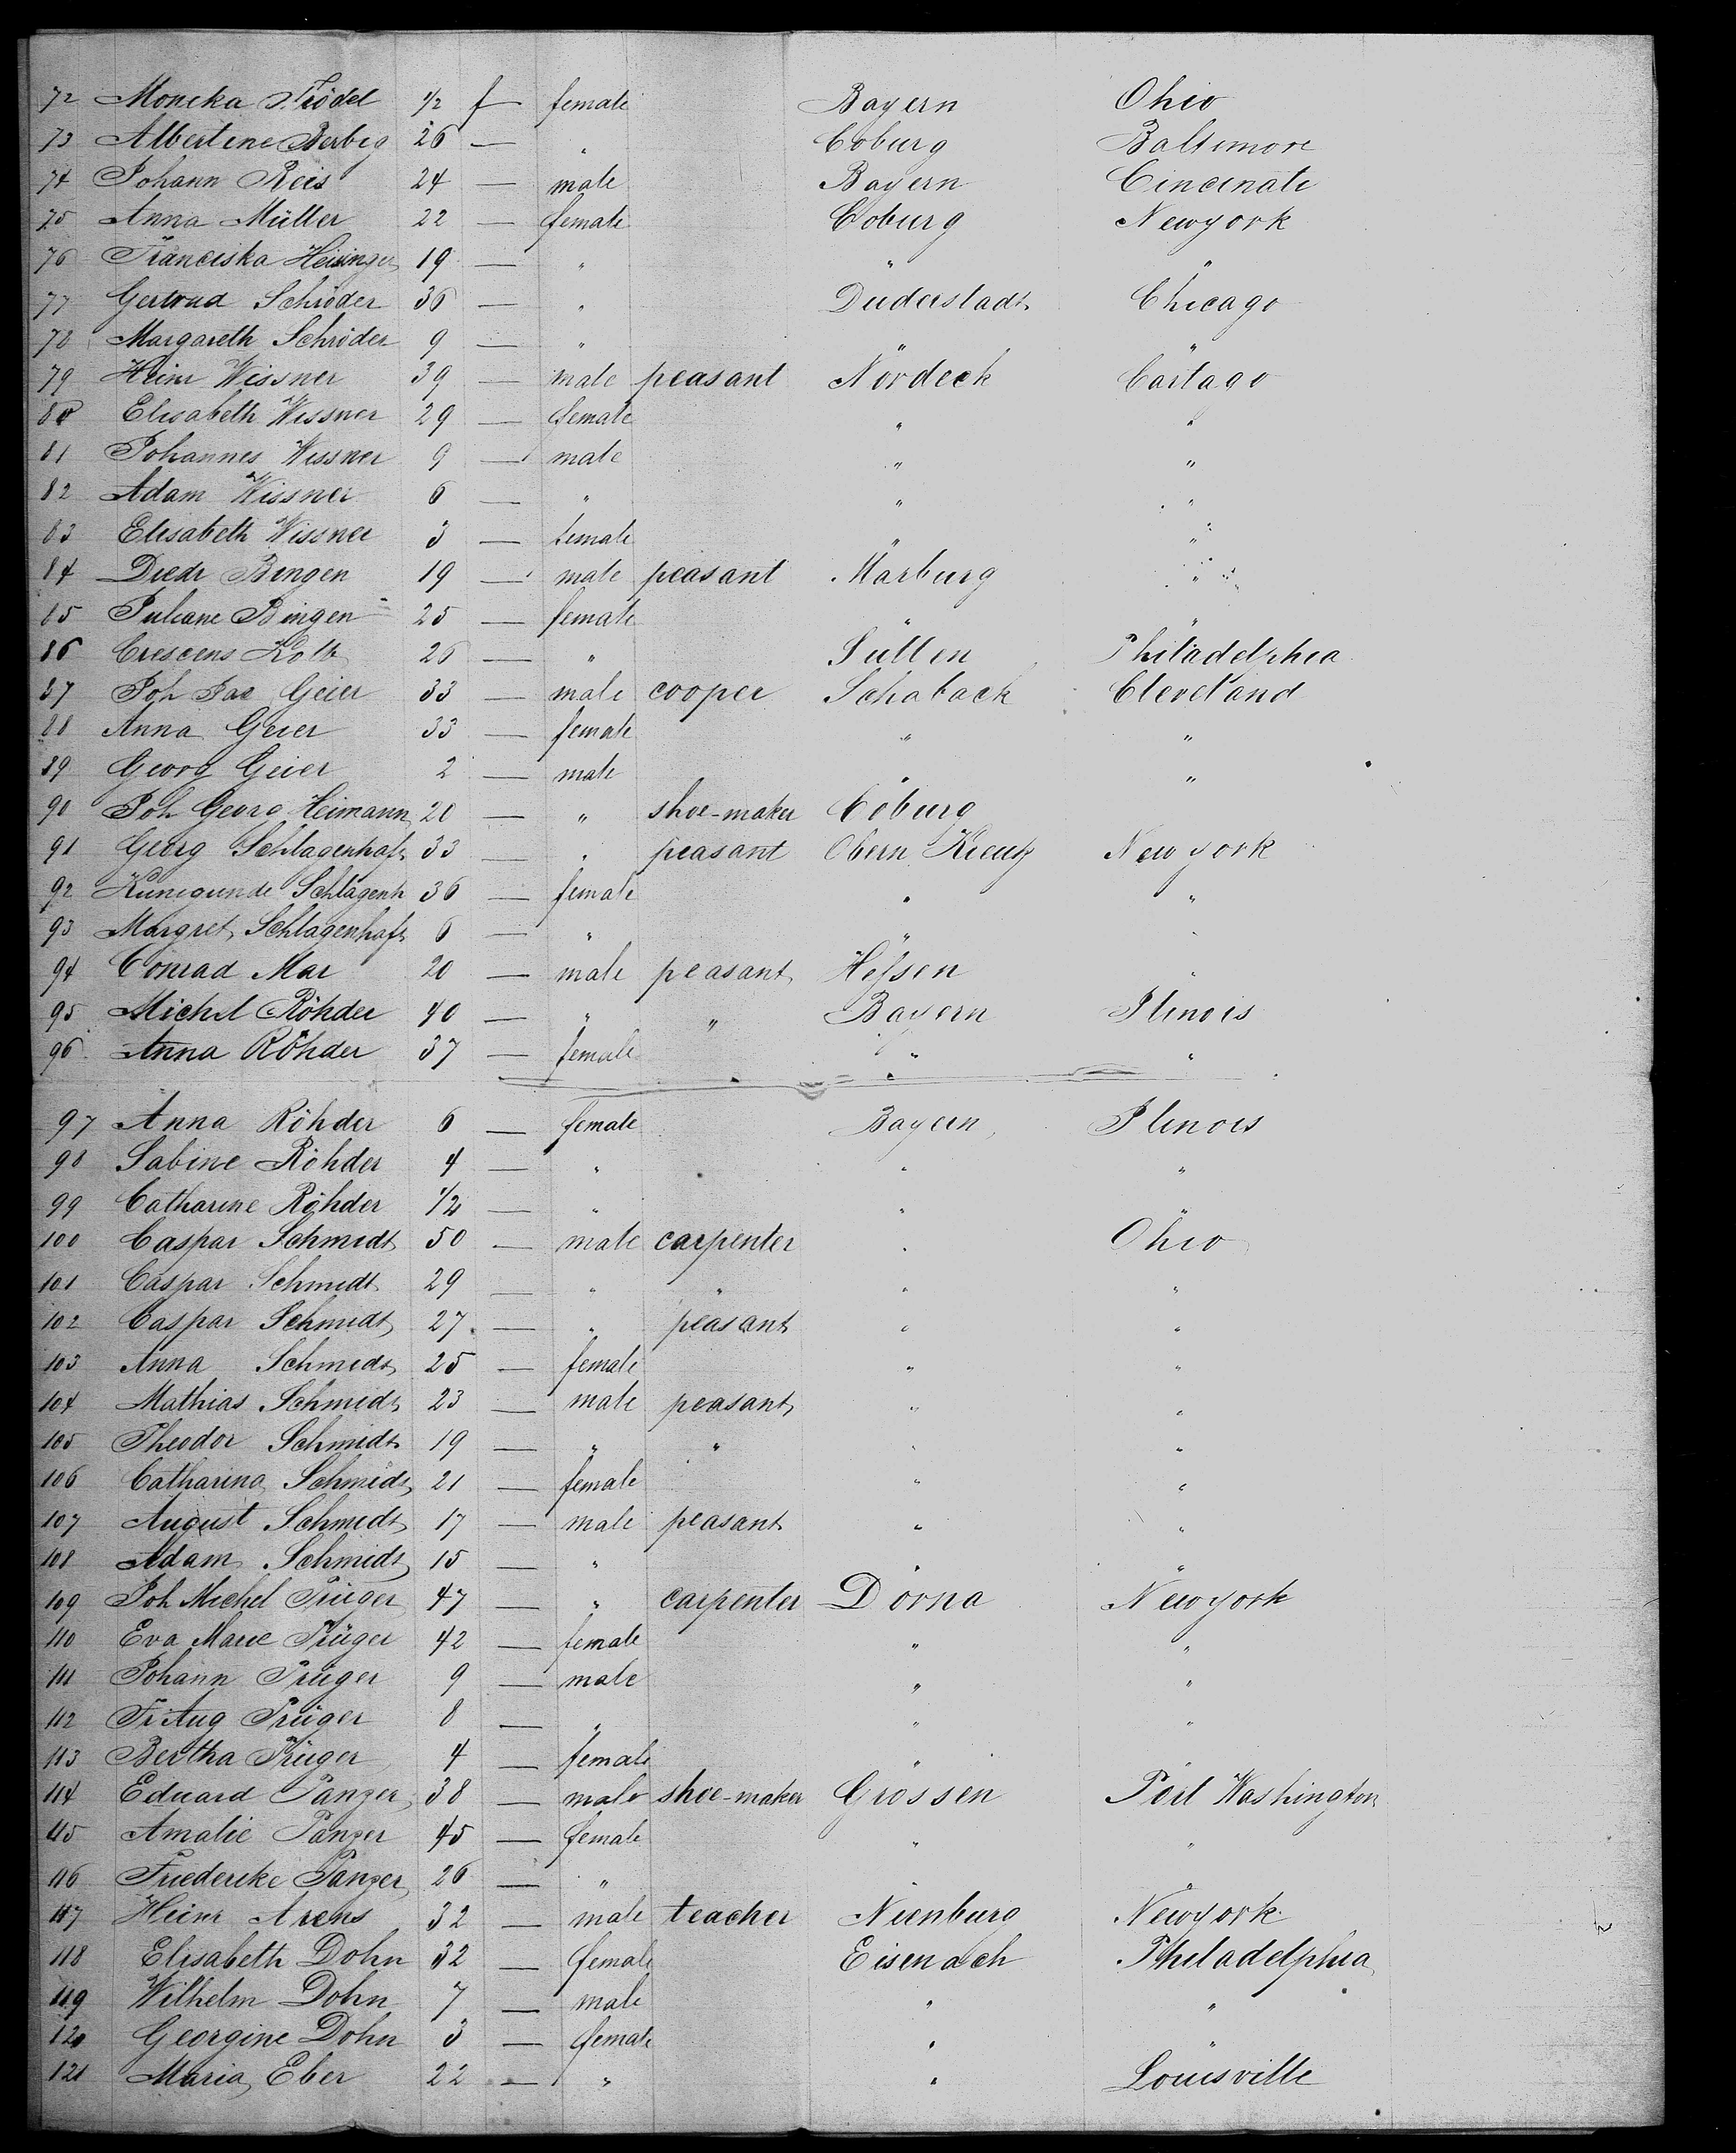 72 Moneka Trödel 1/2 f — female Bayern Ohio
73 Albertine Berbig 26 — " Coburg Baltimore
74 Johann Reis 24 — male Bayern Cincinati
75 Anna Müller 22 — female Coburg Newyork
76 Franciska Heisinger 19 — " " "
77 Gertrud Schröder 36 — " Duderstadt Chicago
78 Margareth Schröder 9 — " " "
79 Heinr Wissner 39 — male peasant Nordeck Cartago
80 Elisabeth Wissner 29 — female " "
81 Johannes Wissner 9 — male " "
82 Adam Wissner 6 — " " "
83 Elisabeth Wissner 3 — female " "
84 Diedr Bingen 19 — male peasant Marburg "
85 Juliane Bingen 25 — female " "
86 Crescens Kolb 26 — " Sutten Philadelphia
87 Joh Jac Geier 33 — male cooper Schaback Cleveland
88 Anna Geier 33 — female " "
89 Georg Geier 2 — male " "
90 Joh Georg Heimann 20 — " shoe-maker Coburg
91 Georg Schlagenhaft 33 — " peasant Obern Kreutz New york
92 Kunigunde Schlagenh 36 — female " "
93 Margret Schlagenhaft 6 — " " "
94 Conrad Mar 20 — male peasant Hessen "
95 Michel Röhder 40 — " " Bayern Ilinois
96 Anna Röhder 37 — female " "
97 Anna Röhder 6 — female Bayern Ilinois
98 Sabine Röhder 4 — " " "
99 Catharine Röhder 1/2 — " " "
100 Caspar Schmidt 50 — male carpenter " Ohio
101 Caspar Schmidt 29 — " " " "
102 Caspar Schmidt 27 — " peasant " "
103 Anna Schmidt 25 — female " "
104 Mathias Schmidt 23 — male peasant " "
105 Theodor Schmidt 19 — " " " "
106 Catharina Schmidt 21 — female " "
107 August Schmidt 17 — male peasant " "
108 Adam Schmidt 15 — " " "
109 Joh Michel Prüger 47 — " carpenter Dorna Newyork
110 Eva Marie Prüger 42 — female " "
111 Johann Prüger 9 — male " "
112 Fr Aug Prüger 8 — " " "
113 Bertha Prüger 4 — female " "
114 Eduard Panzer 38 — male shoe-maker Grossen Port Washington
115 Amalie Panzer 45 — female " "
116 Friederike Panzer 26 — " " "
117 Heinr Arens 32 — male teacher Nienburg Newyork
118 Elisabeth Dohn 32 — female Eisenach Philadelphia
119 Wilhelm Dohn 7 — male " "
120 Georgine Dohn 3 — female " "
121 Maria Eber 22 — " " Louisville